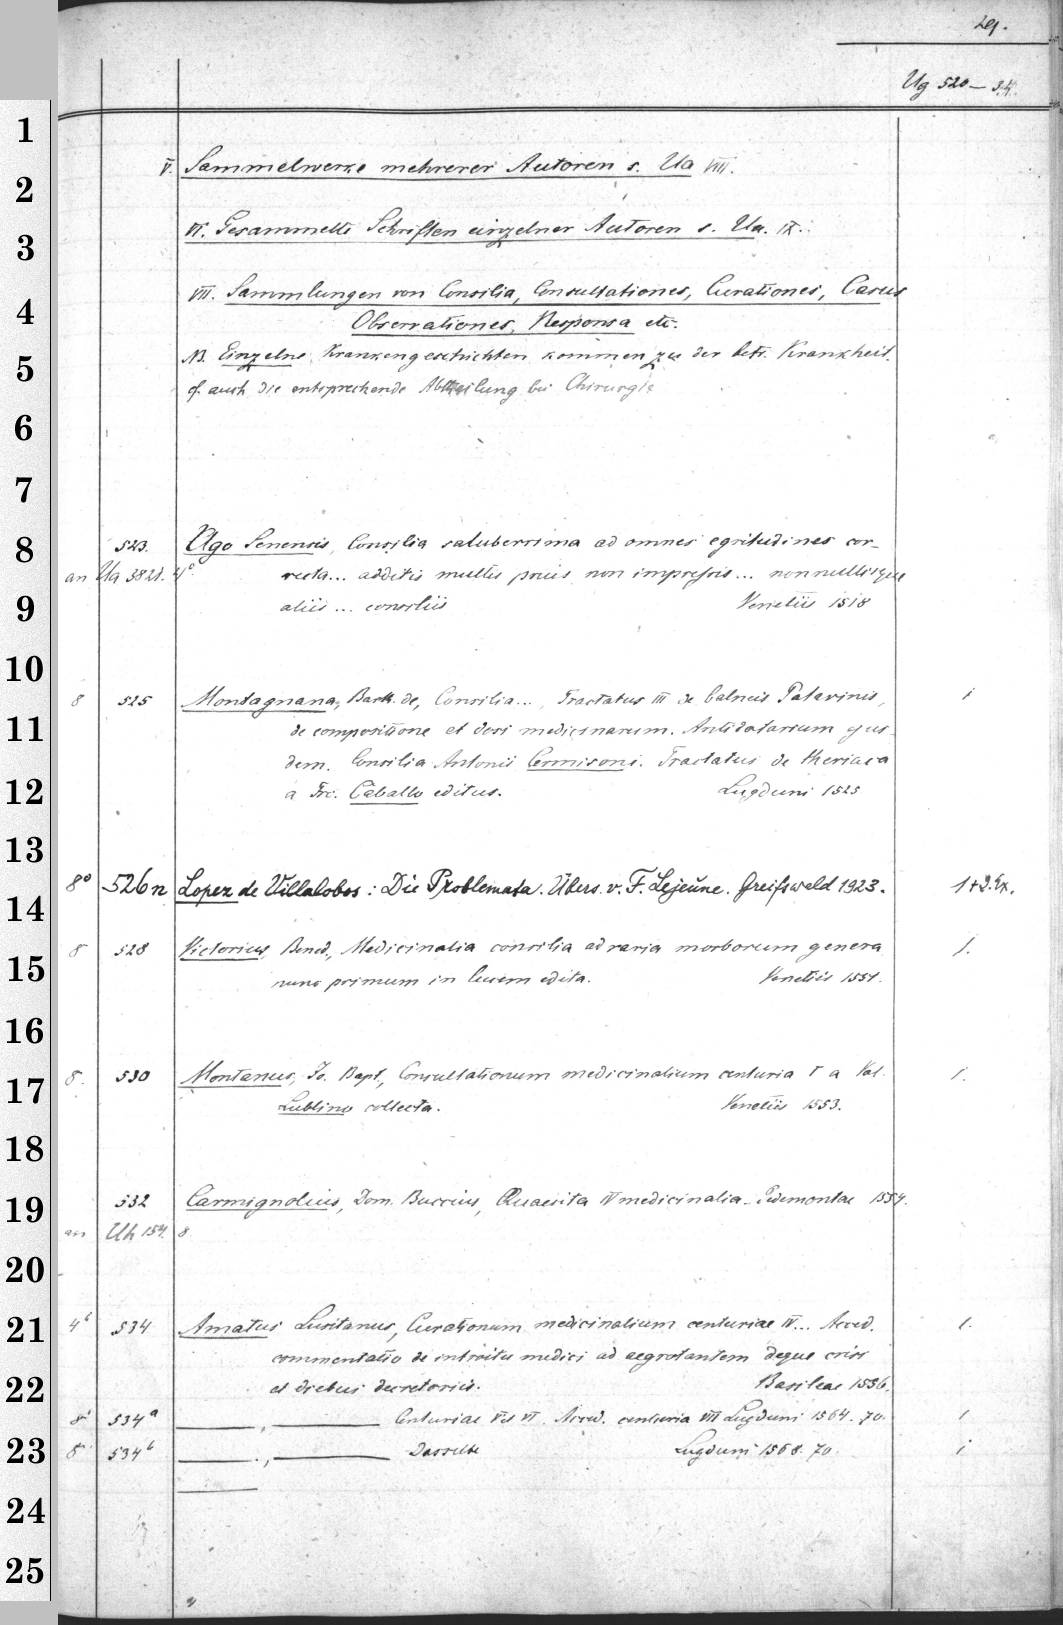 29.
Ug 520–34.
V. Sammelwerke mehrerer Autoren s. Ua VIII.
VI. Gesammelte Schriften einzelner Autoren s. Ua. IX.
VII. Sammlungen von Consilia, Consultationes, Curationes, Casus
Observationes, Responsa etc.
NB. Einzelne Krankengeschichten kommen zu der betr. Krankheit.
cf. auch die entsprechende Abtheilung bei Chirurgie
523. Ugo Senensis, Consilia saluberrima ad omnes egritudines cor-
an Ua 382d. 4° recta... additis multis prius non impressis... nonnullisque
aliis... consiliis Venetiis 1518
8 525 Montagnana, Barth. de, Consilia..., Tractatus III de balneis Patavinis, 1
de compositione et dosi medicinarum. Antidotarium ejus-
dem. Consilia Antonii Cermisoni. Tractatus de theriaca
a Frc. Caballo editus. Lugduni 1525
8° 526n Lopez de Villalobos: Die Problemata. Übers. v. F. Lejeune. Greifswald 1923. 1+2.Ex.
8 528 Victorius, Bened., Medicinalia consilia ad varia morborum genera 1.
nunc primum in lucem edita. Venetiis 1551.
8. 530 Montanus, Jo. Bapt., Consultationum medicinalium centuria I a Val. 1.
Lublino collecta. Venetiis 1553.
532 Carmignolius, Dom. Buccius, Quaesita IV medicinalia. Pedemontae 1554.
an Uh 154. 8
4° 534 Amatus Lusitanus, Curationum medicinalium centuriae IV... Acced. 1.
commentatio de introitu medici ad aegrotantem deque crisi
et diebus decretoriis. Basileae 1556.
8° 534a ———, ——— Centuriae V et VI. Acced. centuria VII Lugduni 1564. 70. 1
8° 534b ———, ——— Dasselbe Lugduni 1568. 70. 1
1
2
3
4
5
6
7
8
9
10
11
12
13
14
15
16
17
18
19
20
21
22
23
24
25